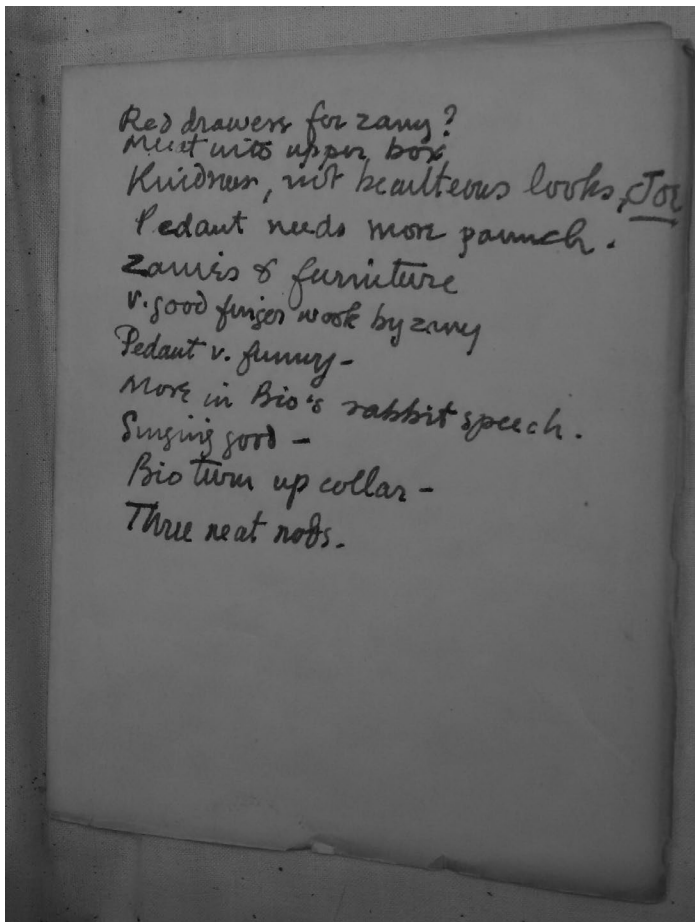 Red drawers for zany?
Meat into upper box
Kindness, not beauteous looks, Joe
Pedant needs more paunch.
Zanies & furniture
v. good finger work by zany
Pedant v. funny -
More in Bio's rabbit speech.
Singing good -
Bio turn up collar -
Three neat nods.